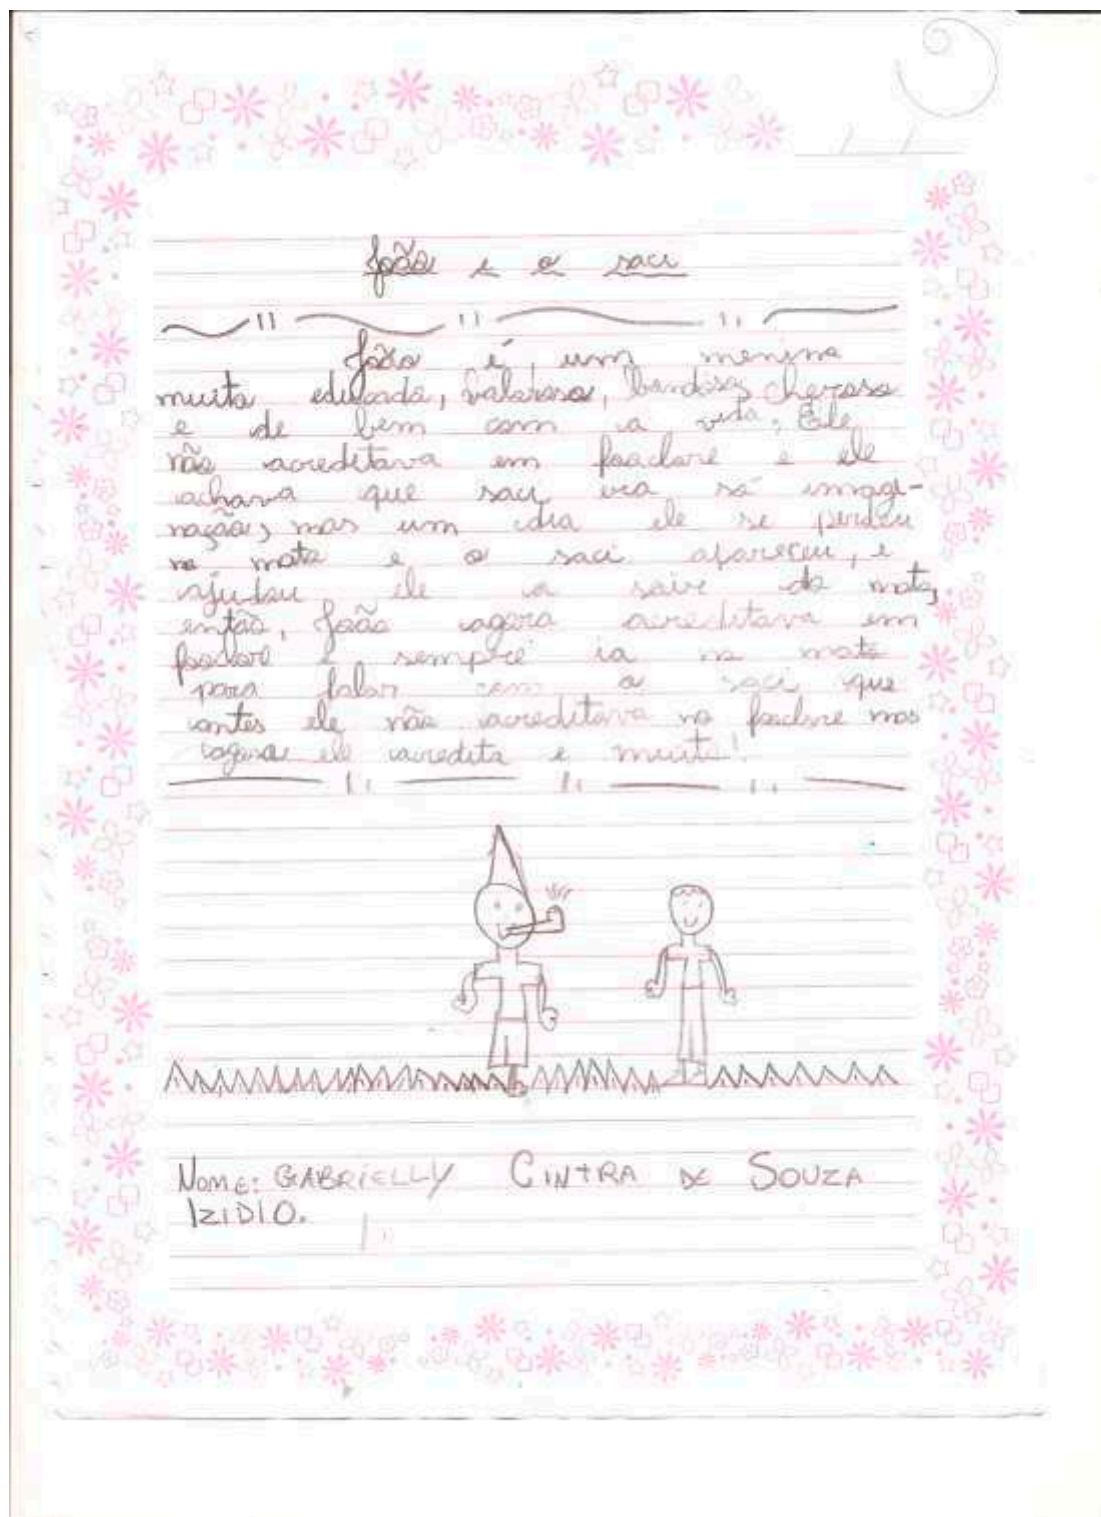 João e o saci
João é, um menino
muito educado, valoroso, bondoso, cheroso
e de bem com a vida, Ele
não acreditava em foaclore e ele
achava que saci era só imagi-
nação, mas um dia ele se perdeu
na mata e o saci apareceu, e
ajudou ele a sair da mata,
então, João agora acreditava em
foaclore e sempre ia na mata
para falar com o saci que
antes ele não acreditava no foaclore mas
agora ele acredita e muito!
Nome: GABRIELLY CINTRA DE SOUZA
IZIDIO.